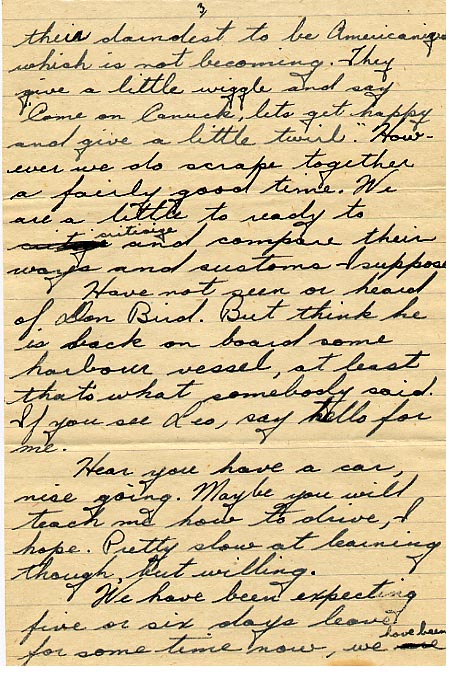 3
their darndest to be Americanized
whish is not becoming. They
give a little wiggle and say
"Come on Canuck, lets get happy
and give a little twirl." How-
ever we do scrape together
a fairly good time. We
are a little to ready to
critisize and compare their
ways and customs I suppose
Have not seen or heard
of Don Bird. But think he
is back on board some
harbour vessel, at least
thats what somebody said.
If you see Leo, say hello for
me.
Hear you have a car,
nise going. Maybe you will
teach me how to drive, I
hope. Pretty slow at learning
though, but willing.
We have been expecting
five or six days leave
for some time now, we have been